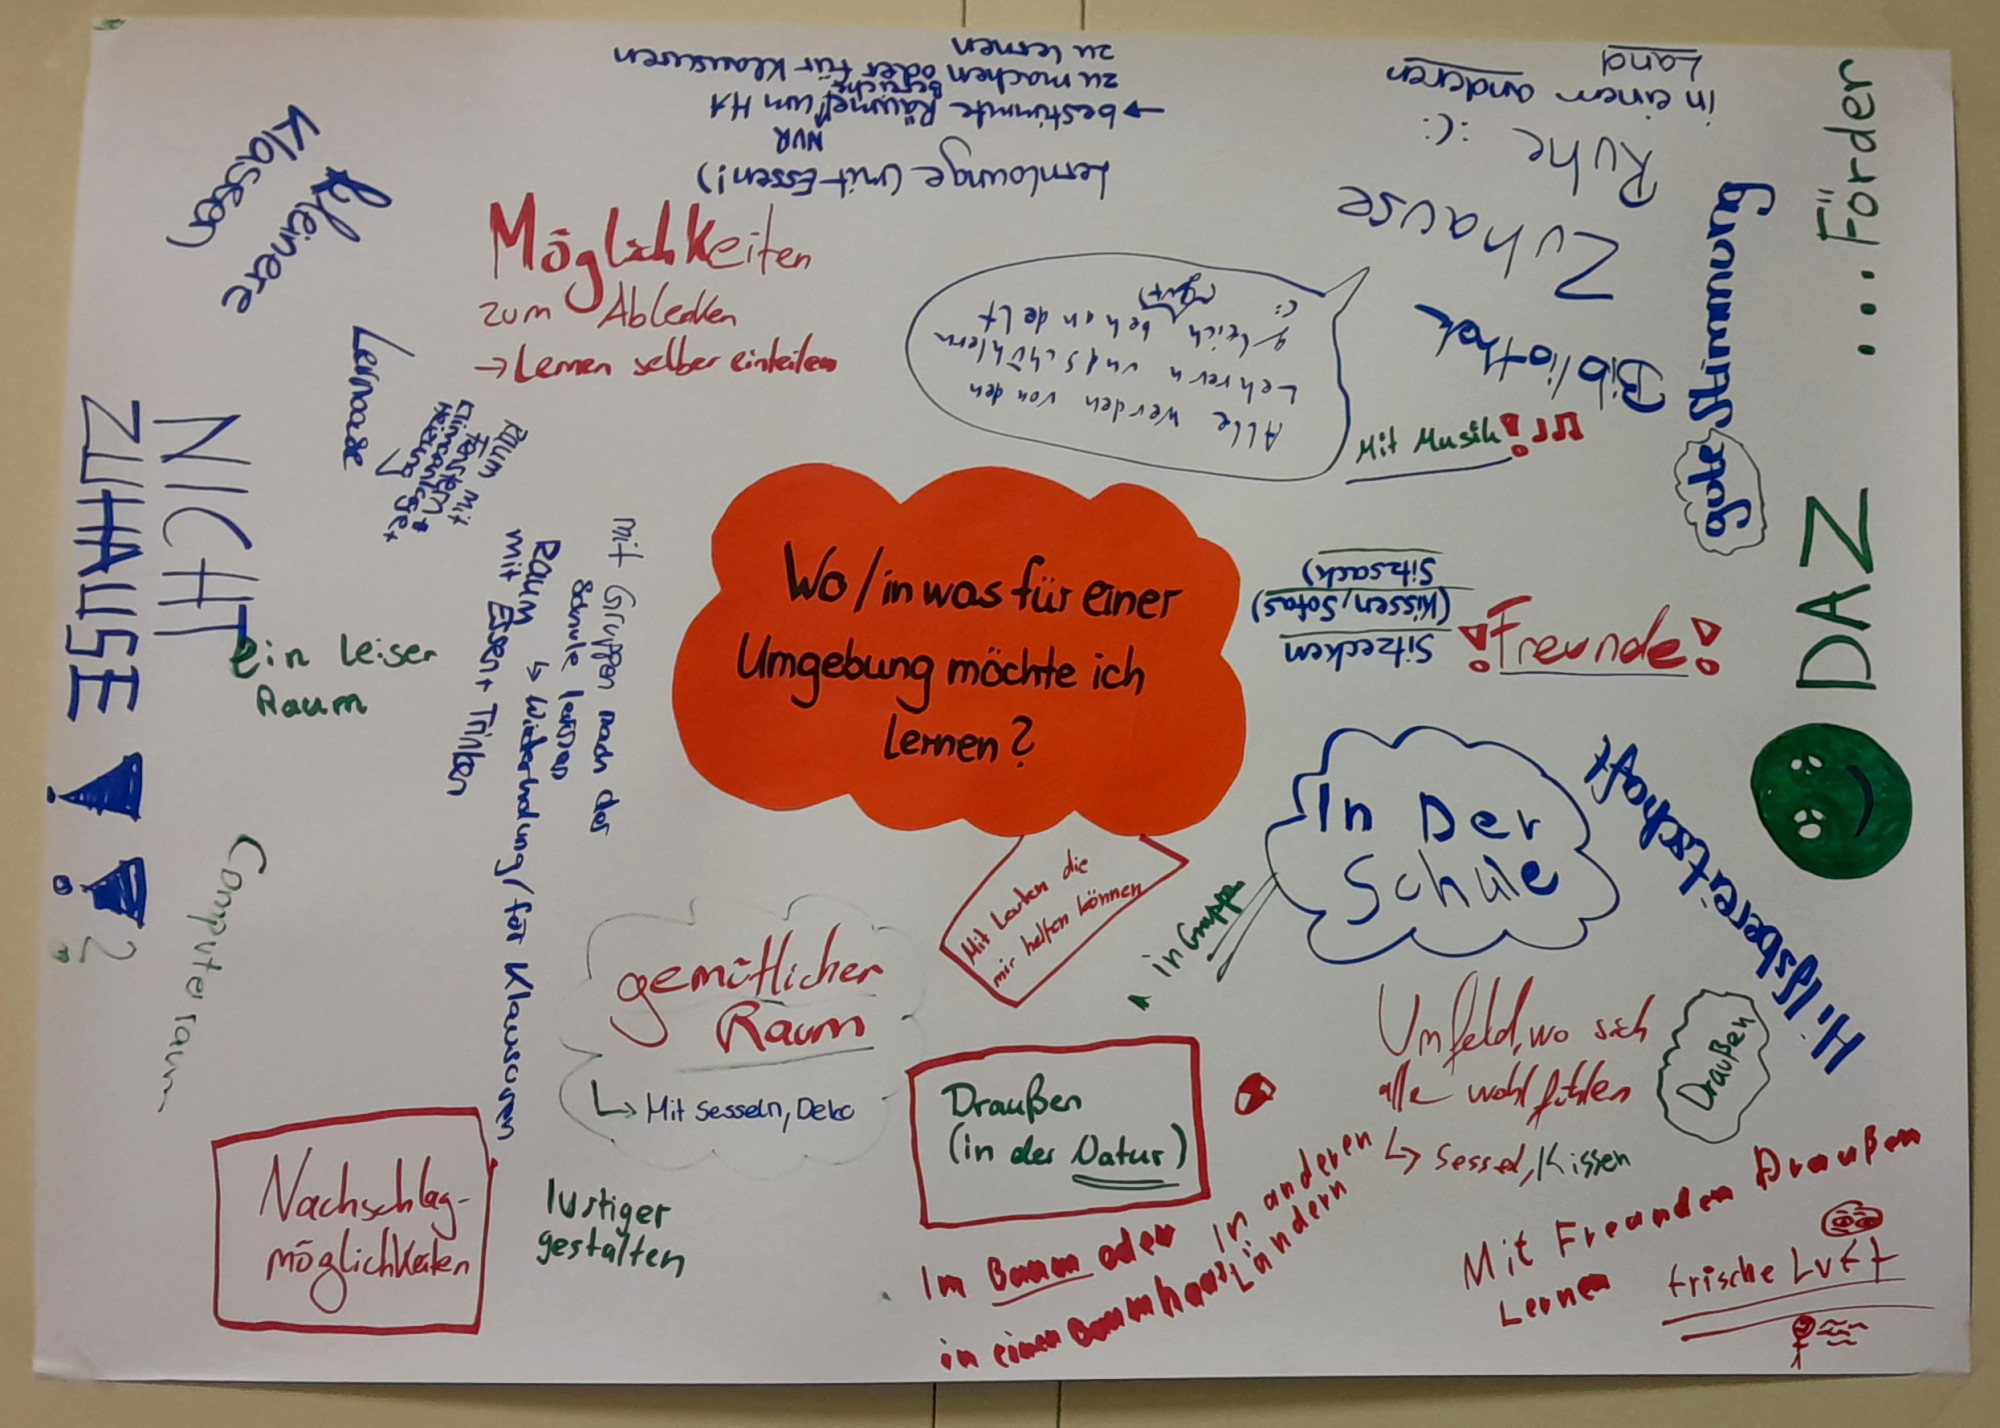 Wo/in was für einer
Umgebung möchte ich
lernen?
Kleinere
Klassen
Möglichkeiten
zum Ablecken
→ Lernen selber einteilen
Lernlounge (mit Essen!)
NUR
→ bestimmte Räume/ um HA
Bereiche
zu machen oder für Klausuren
zu lernen
in einem anderen
Land
Ruhe :c:
Zuhause
Bibliothek
Mit Musik!
Alle werden von den
Lehrern und schühlern
gleich behandelt
(gut)
c:
gute Stimmung
....Förder
DAZ
Sitzecken
(Kissen, Sofas)
Sitzsack)
!Freunde!
In Der
Schule
in Gruppen
Hilfsbereitschaft
Draußen
Umfeld, wo sich
alle wohl fühlen
↳ Sessel, Kissen
Mit Freunden Draußen
Lernen
frische Luft
Mit Leuten die
mir helfen können
Draußen
(in der Natur)
Im Baum oder
in einen Baumhaus
In anderen
Ländern
gemütlicher
Raum
↳ Mit Sesseln, Deko
lustiger
gestalten
Nachschlag-
möglichkeiten
Computerraum
ein leiser
Raum
NICHT
ZUHAUSE !!
?
Lernoase
Raum mit
Fenstern +
Klimaanlage +
Heizung
mit Gruppen nach der
Schule lernen
Raum ↳ Wiederholung/für Klausuren
mit Essen + Trinken